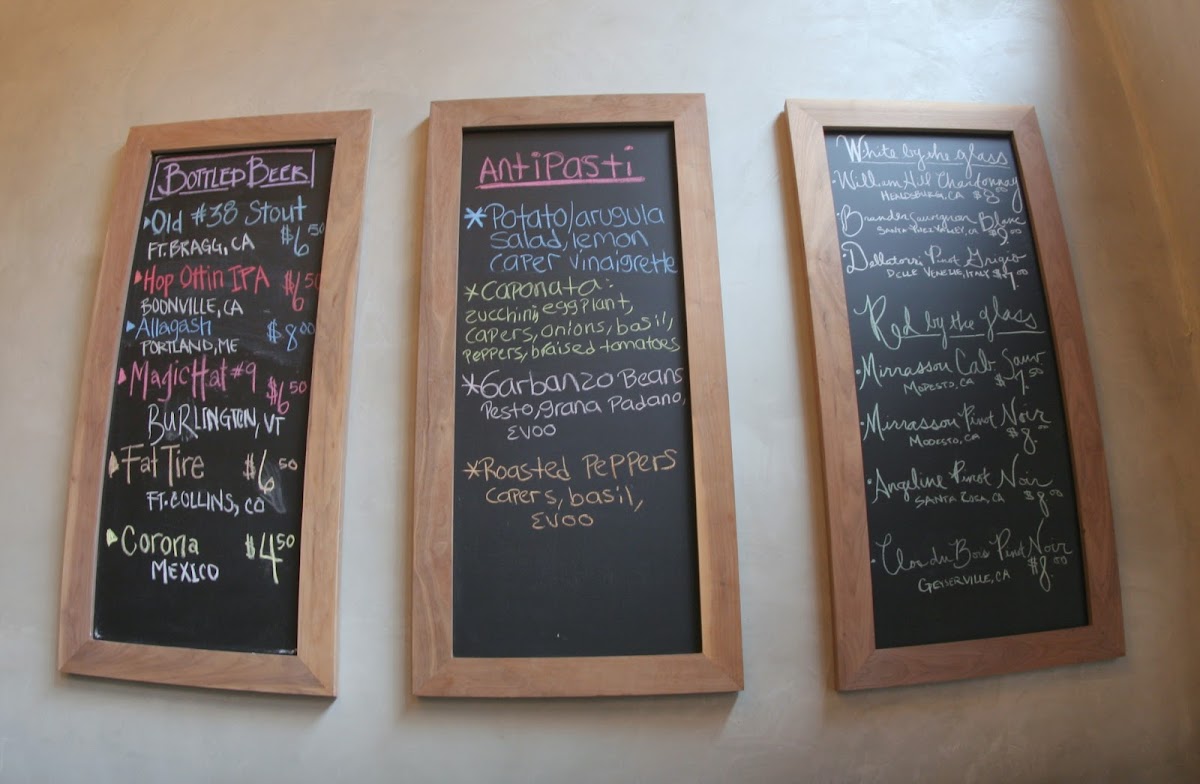 BOTTLED BEER
Old #38 Stout
FT. BRAGG, CA $6.50
Hop Ottin IPA $6.50
BOONVILLE, CA
Allagash $8.00
PORTLAND, ME
Magic Hat #9 $6.50
BURLINGTON, VT
Fat Tire $6.50
FT. COLLINS, CO
Corona $4.50
MEXICO
ANTIPASTI
*Potato/arugula
salad, lemon
caper vinaigrette
*Caponata:
zucchini, eggplant,
capers, onions, basil,
peppers, braised tomatoes
*Garbanzo Beans
Pesto, grana Padano,
EVOO
*Roasted Peppers
capers, basil,
EVOO
White by the glass
William Hill Chardonnay
HEALDSBURG, CA $8.00
Brander Sauvignon Blanc
SANTA YNEZ VALLEY, CA $9.00
Dellatorri Pinot Grigio
DELLE VENEZIE, ITALY $7.00
Red by the glass
Mirrassou Cab Sauv
MODESTO, CA $7.50
Mirrassou Pinot Noir
MODESTO, CA $8.00
Angeline Pinot Noir
SANTA ROSA, CA $8.00
Clos du Bois Pinot Noir
GEYSERVILLE, CA $8.00